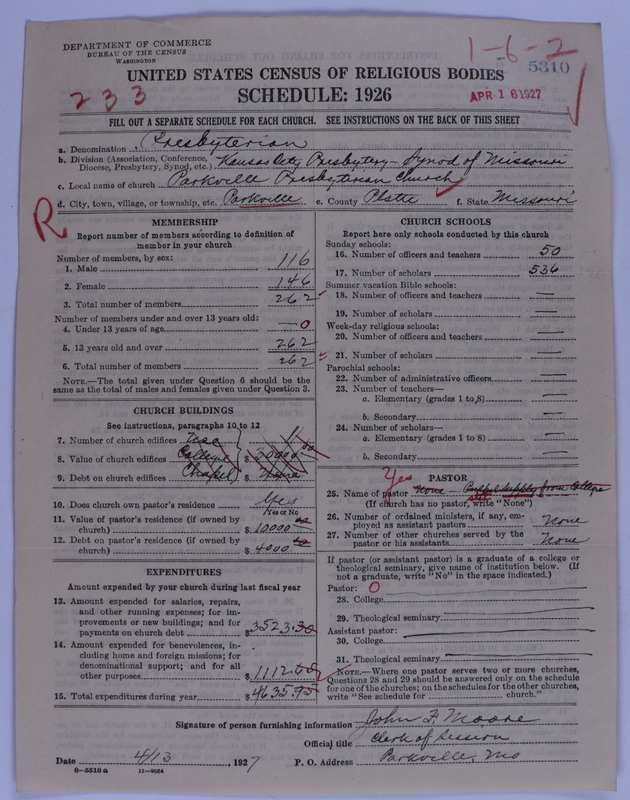 DEPARTMENT OF COMMERCE
BUREAU OF THE CENSUS
WASHINGTON
1-6-2
5310
UNITED STATES CENSUS OF RELIGIOUS BODIES
233
SCHEDULE: 1926
APR 16 1927
FILL OUT A SEPARATE SCHEDULE FOR EACH CHURCH. SEE INSTRUCTIONS ON THE BACK OF THIS SHEET
a. Denomination Presbyterian
b. Division (Association, Conference, Diocese, Presbytery, Synod, etc.) Kansas City Presbytery - Synod of Missouri
c. Local name of church Parkville Presbyterian Church
d. City, town, village, or township, etc. Parkville e. County Platte f. State Missouri
R
MEMBERSHIP
Report number of members according to definition of
member in your church
Number of members, by sex:
1. Male 116
2. Female 146
3. Total number of members 262
Number of members under and over 13 years old:
4. Under 13 years of age — 0
5. 13 years old and over 262
6. Total number of members 262
NOTE.—The total given under Question 6 should be
same as the total of males and females given under Question 3.
CHURCH BUILDINGS
See instructions, paragraphs 10 to 12
7. Number of church edifices Use 1
8. Value of church edifices College $ 20000 00
9. Debt on church edifices Chapel $ none
10. Does church own pastor's residence Yes
Yes or No
11. Value of pastor's residence (if owned by
church) $ 10000 00
12. Debt on pastor's residence (if owned by
church) $ 4000 00
EXPENDITURES
Amount expended by your church during last fiscal year
13. Amount expended for salaries, repairs,
and other running expenses; for im-
provements or new buildings; and for
payments on church debt $ 3523.30
14. Amount expended for benevolences, in-
cluding home and foreign missions; for
denominational support; and for all
other purposes $ 1112.
15. Total expenditures during year $ 4635.95
CHURCH SCHOOLS
Report here only schools conducted by this church
Sunday schools:
16. Number of officers and teachers 50
17. Number of scholars 536
Summer vacation Bible schools:
18. Number of officers and teachers —
19. Number of scholars —
Week-day religious schools:
20. Number of officers and teachers —
21. Number of scholars —
Parochial schools:
22. Number of administrative officers —
23. Number of teachers—
a. Elementary (grades 1 to 8) —
b. Secondary —
24. Number of scholars—
a. Elementary (grades 1 to 8) —
b. Secondary —
Yes
PASTOR
25. Name of pastor None - Pulpit supply from College
(If church has no pastor, write "None")
26. Number of ordained ministers, if any, em-
ployed as assistant pastors None
27. Number of other churches served by the
pastor or his assistants None
If pastor (or assistant pastor) is a graduate of a college or
theological seminary, give name of institution below. (If
not a graduate, write "No" in the space indicated.)
Pastor: 0
28. College —
29. Theological seminary —
Assistant pastor:
30. College —
31. Theological seminary —
NOTE.—Where one pastor serves two or more churches,
Questions 28 and 29 should be answered only on the schedule
for one of the churches; on the schedules for the other churches,
write "See schedule for church."
Signature of person furnishing information John F Moore
Official title Clerk of Session
Date 4/13, 1927 P. O. Address Parkville, Mo
8-5518a 11-9054